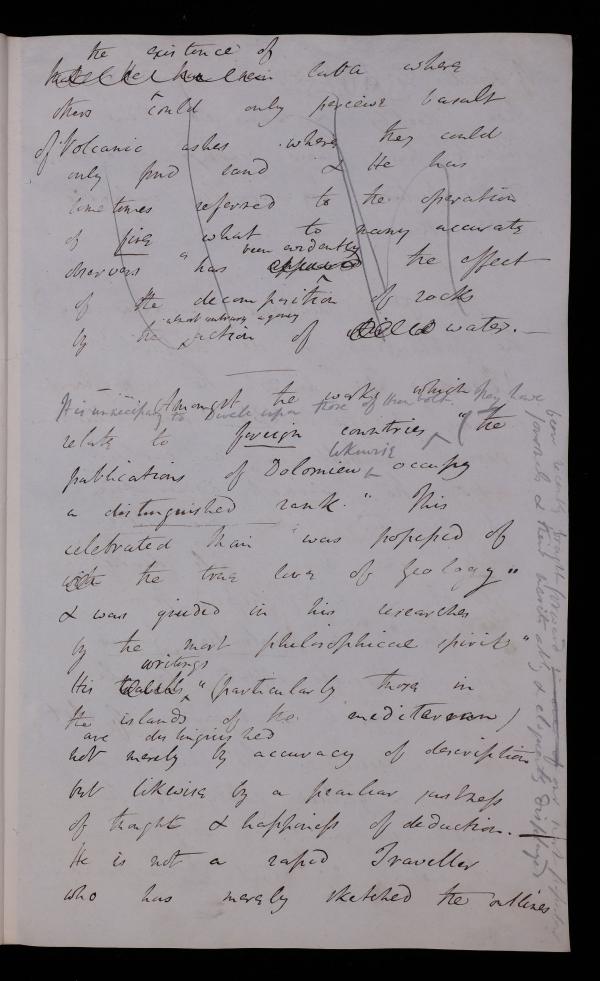 the existence of
lava where
others could only perceive basalt
of Volcanic ashes where they could
only find sand & He has
sometimes referred to the operation
of fire what to many accurate
observers has been evidently the effect
of the decomposition of rocks
by the action of water. —
Amongst the works which
It is unnecessary to Dwell upon those of
relate to foreign countries "the
likewise
publications of Dolomieu occupy
a distinguished rank." This
celebrated Man "was possessed of
the true love of Geology"
& was guided in his researches
by the most philosophical spirit "
writings
His "(particularly those in
the islands of the mediterran)
are distinguished
not merely by accuracy of description
but likewise by a peculiar justness
of thought & happiness of deduction. —
He is not a rapid Traveller
who has merely sketched the outlines